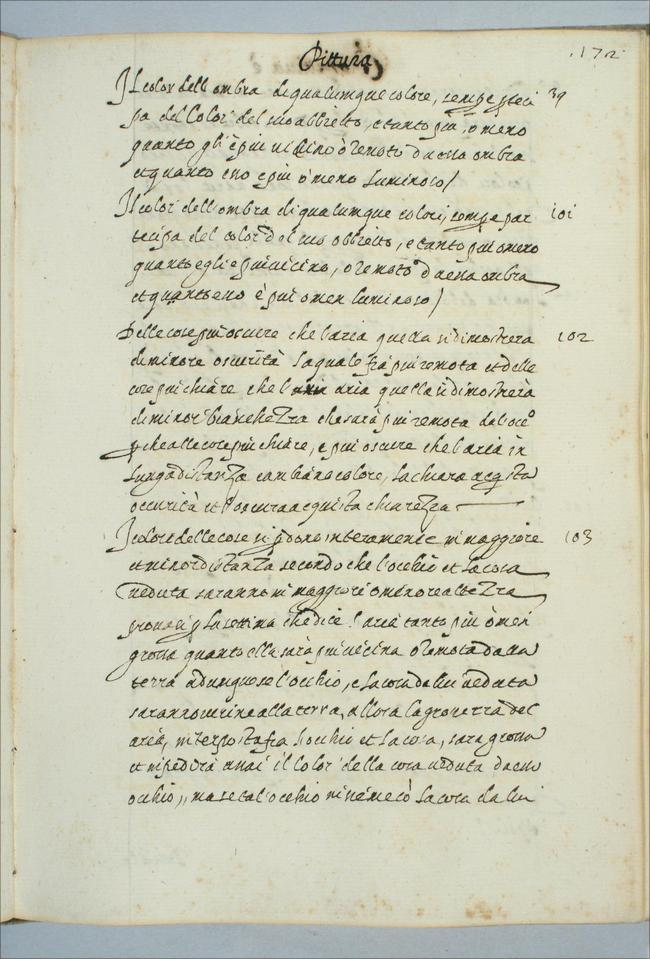 Pittura
.172.
Il color dell ombra di qualumque colore, sempre parteci 39
pa del Colori del suo obbietto, e tanto più, o meno
quanto gli è piu vicino ò remoto da essa ombra
et quanto eno e piu ò meno Luminoso/
Il colori dell ombra di qualumque colori, sempe par 101
tecipa del color del suo obbietto, e tanto piu omero
quanto egli e piu vicino, o remoto da essa ombra
et quanto eno è piu omen luminoso/
Delle cose piu oscure che l'aria quella si dimostrera 102
di minore oscurità la quale fia piu remota et delle
cose piu chiare che l' aria quella si dimostrerà
di minor bianchezza che sarà piu remota dal oc.o
p che alle cose piu chiare, e piu oscure che l'aria in
lunga distanza cambiano colore, la chiara acqista
occurità et l'oscura acquista chiarezza
I colori delle cose si pdono interamente in maggiore 103
et minor distanza secondo che l'occhio et la cosa
veduta saranno in maggiore o minore altezza
provasi p la settima che dice l'aria tanto più ò men
grossa quanto ella sarà piu vicina o Remota da na
terra adunque se l'occhio, e la cosa da lui veduta
saranno vicine alla terra, allora la grossezza del
aria, interposta fra l'occhio et la cosa, sara grossa
et impedirà assai il Colori della cosa veduta da eno
occhio,, ma se tal occhio insieme cò la cosa da lui